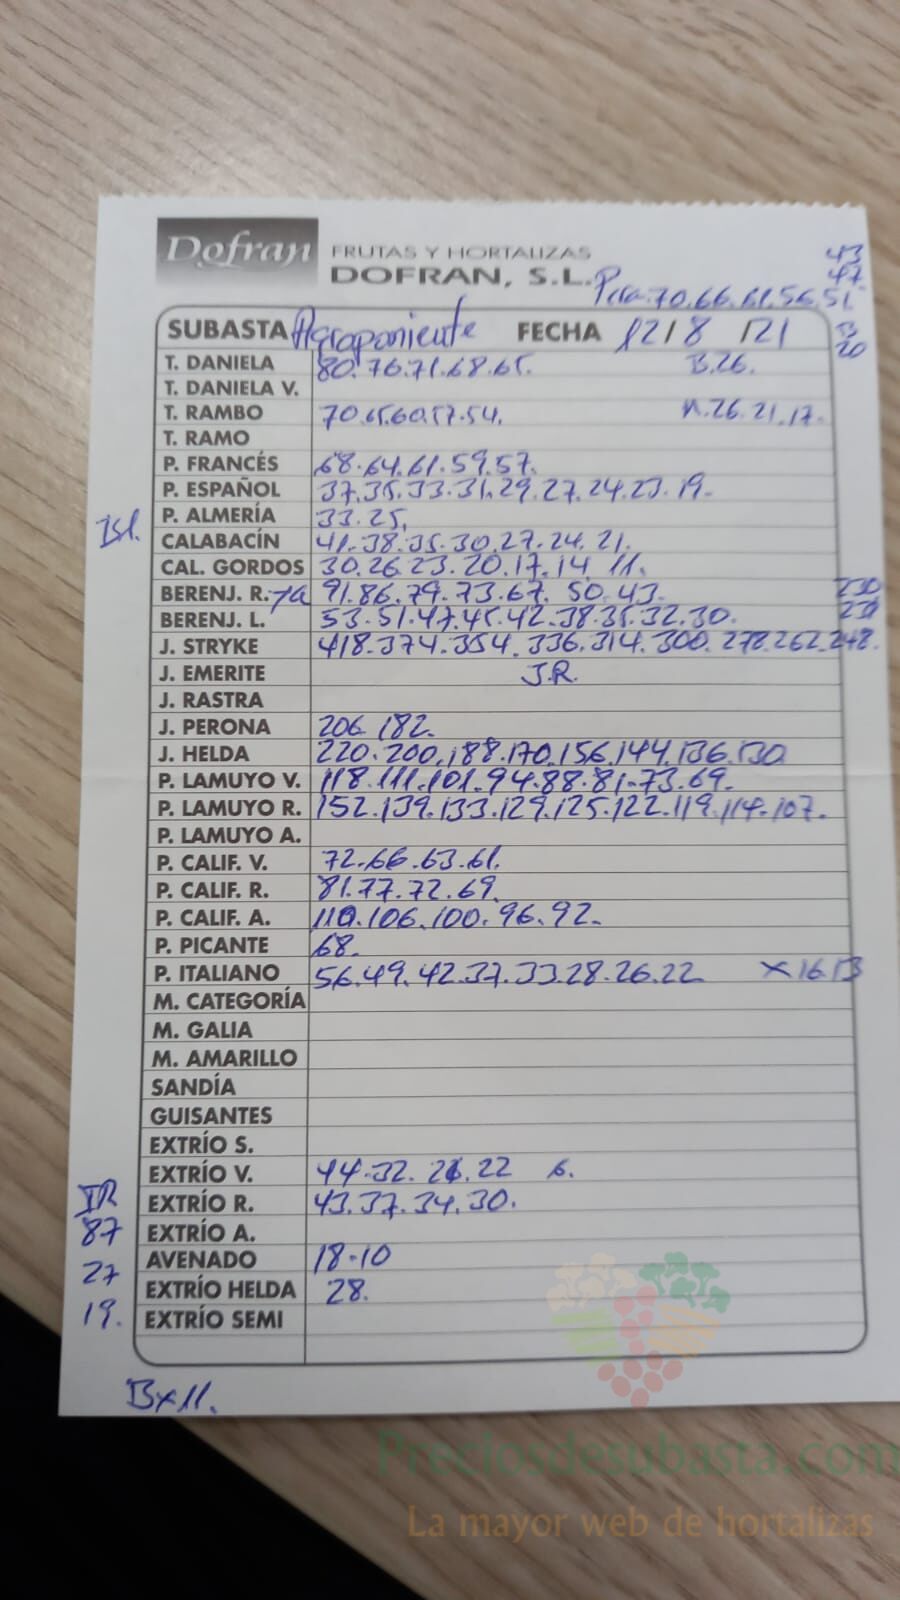 Dofran FRUTAS Y HORTALIZAS 43
DOFRAN, S.L. 47.
Pera. 70.66.61.56.51
SUBASTA Agroponiente FECHA 12/8/21 B
20
T. DANIELA 80.76.71.68.65. B.26.
T. DANIELA V.
T. RAMBO 70.65.60.57.54. N.26.21.17.
T. RAMO
P. FRANCÉS 68.64.61.59.57.
P. ESPAÑOL 37.35.33.31.29.27.24.23.19.
P. ALMERÍA 33.25.
Bl. CALABACÍN 41.38.35.30.27.24.21.
CAL. GORDOS 30.26.23.20.17.14 11.
BERENJ. R. 91.86.79.73.67. 50.43. 230
BERENJ. L. 53.51.47.45.42.38.35.32.30.
J. STRYKE 418.374.354.336.314.300.278.262.248.
J. EMERITE J.R.
J. RASTRA
J. PERONA 206 182.
J. HELDA 220.200.188.170.156.144.136.130
P. LAMUYO V. 118.111.101.94.88.81.73.69.
P. LAMUYO R. 152.139.133.129.125.122.119.114.107.
P. LAMUYO A.
P. CALIF. V. 72.66.63.61.
P. CALIF. R. 81.77.72.69.
P. CALIF. A. 110.106.100.96.92.
P. PICANTE 68.
P. ITALIANO 56.49.42.37.33.28.26.22 x16.13
M. CATEGORÍA
M. GALIA
M. AMARILLO
SANDÍA
GUISANTES
EXTRÍO S.
EXTRÍO V. 44.32.26.22 6.
IR EXTRÍO R. 43.37.34.30.
87 EXTRÍO A.
AVENADO 18-10
27 EXTRÍO HELDA 28.
19. EXTRÍO SEMI
Bx11.
Preciosdesubasta.com
La mayor web de hortalizas